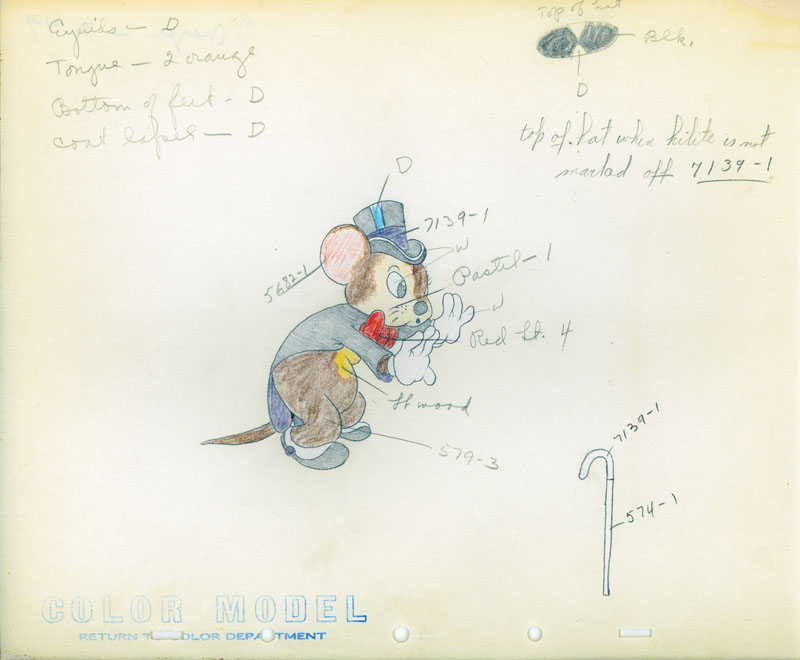 Eyelids — D
Tongue — 2 orange
Bottom of feet - D
coat lapel — D
Top of hat
Blk.
D
top of hat when hilite is not
marked off 7139-1
D
7139-1
W
5682-1
Pastel-1
W
Red Lt. 4
Lt wood
579-3
7139-1
574-1
COLOR MODEL
RETURN TO COLOR DEPARTMENT